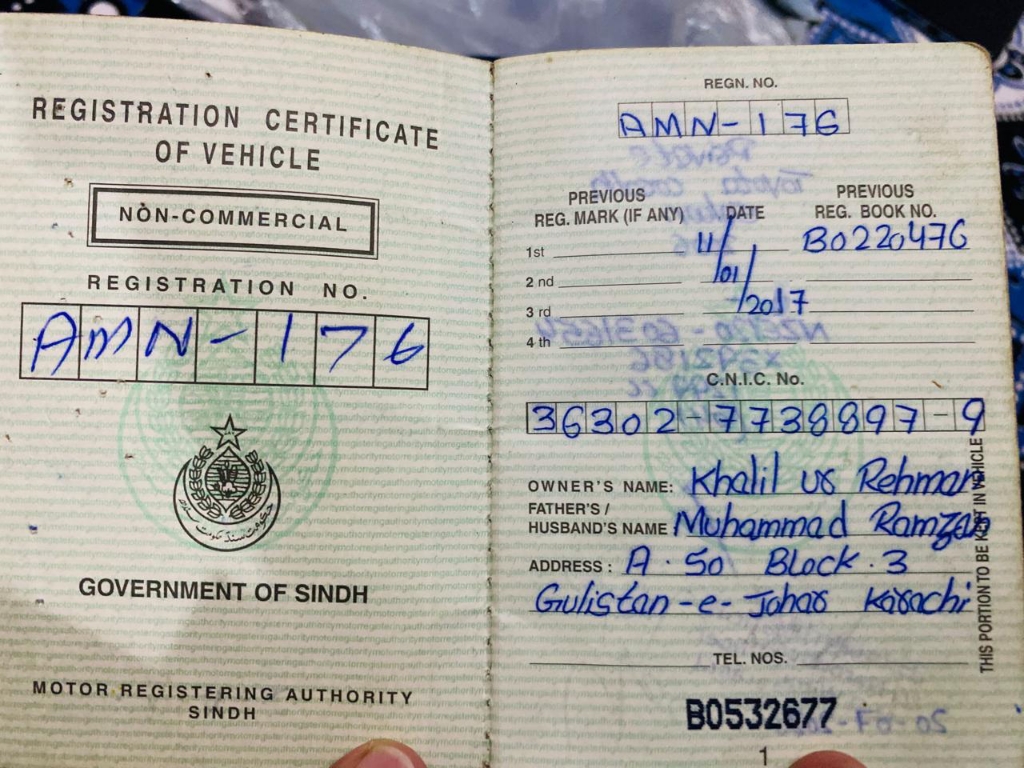 REGISTRATION CERTIFICATE
OF VEHICLE
NON-COMMERCIAL
REGISTRATION NO.
AMN-176
حکومت سندھ
GOVERNMENT OF SINDH
MOTOR REGISTERING AUTHORITY
SINDH
REGN. NO.
AMN-176
PREVIOUS REG. MARK (IF ANY) DATE PREVIOUS REG. BOOK NO.
1st 11/01/2017 B0220476
2nd
3rd
4th
C.N.I.C. No.
36302-7738897-9
OWNER'S NAME: Khalil ur Rehman
FATHER'S /
HUSBAND'S NAME Muhammad Ramzan
ADDRESS : A.50 Block.3
Gulistan-e-Johar Karachi
TEL. NOS.
B0532677
1
THIS PORTION TO BE KEPT IN VEHICLE